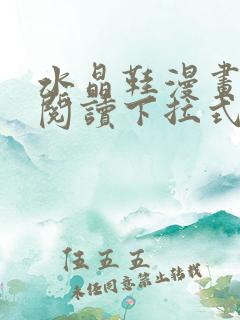 水晶鞋漫畫
閱讀下拉式
任五五
未經同意禁止轉載